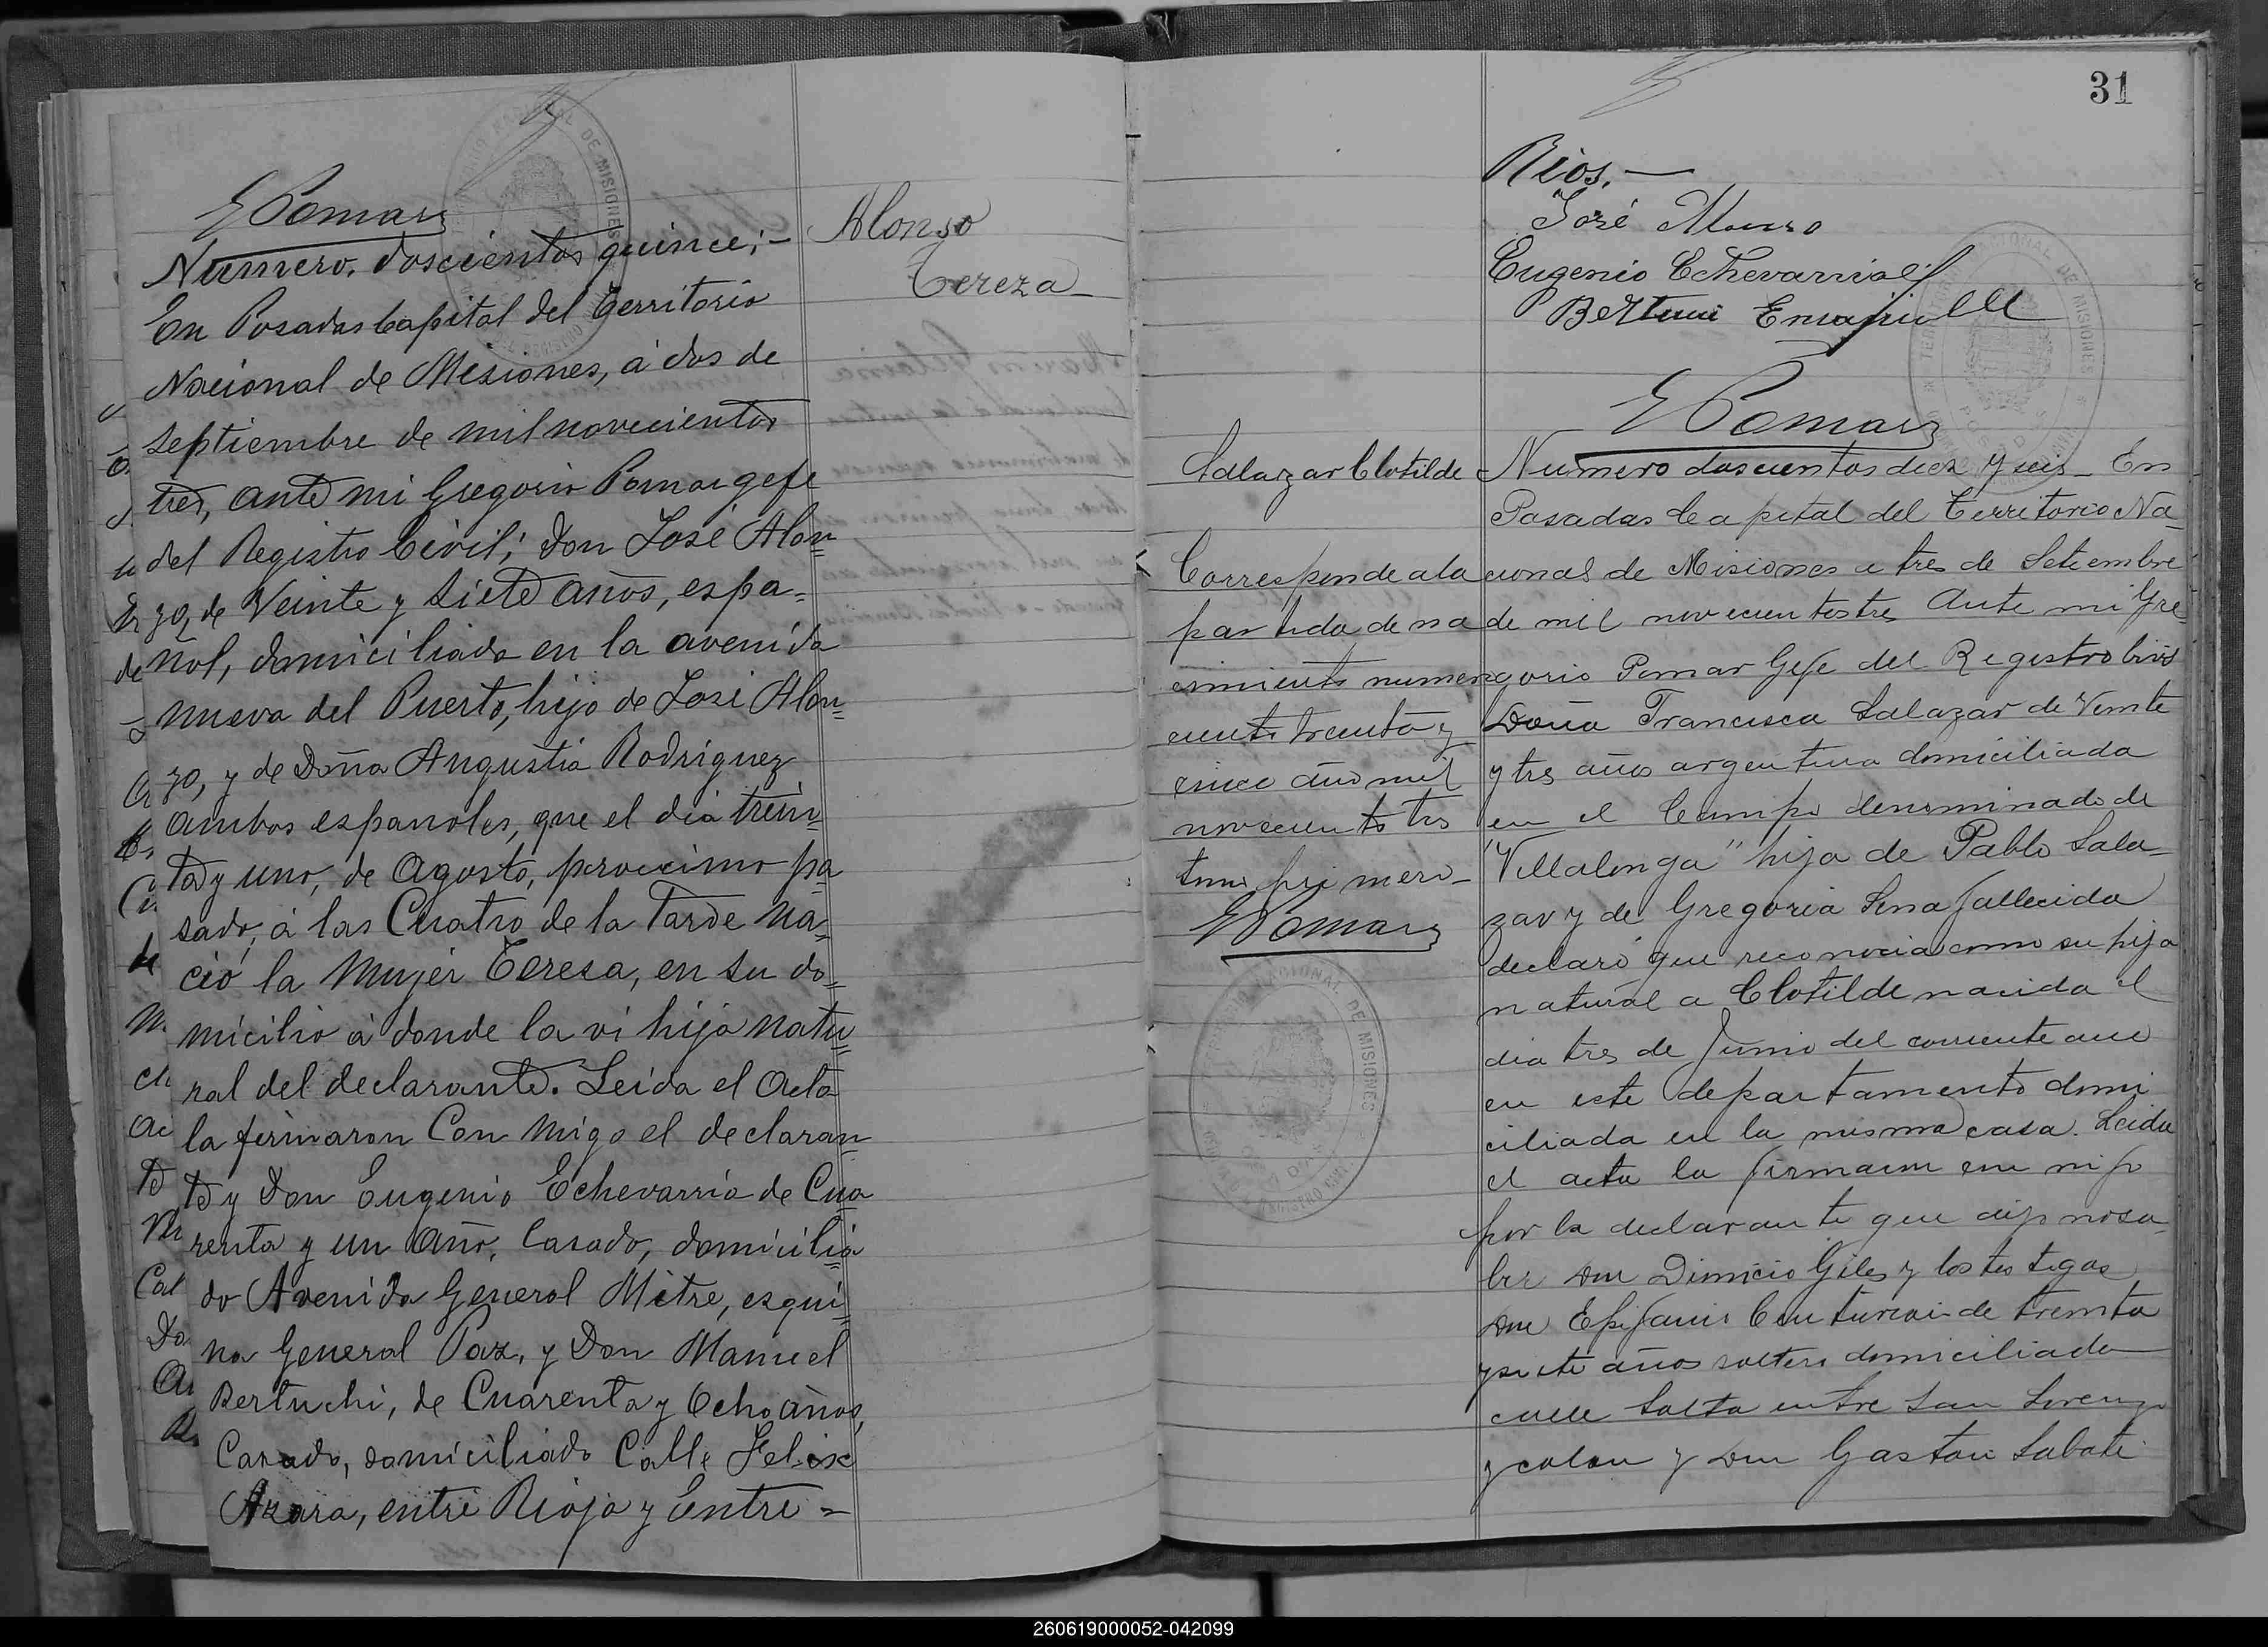 G Pomar
Numero, doscientos quince;-
En Posadas Capital del Territorio
Nacional de Mesiones, á dos de
septiembre de mil novecientos
tres, ante mi Gregorio Pomar gefe
del Registro Civil; Don José Alon=
zo, de Veinte y Siete años, espa=
ñol, domiciliado en la avenida
nueva del Puerto, hijo de José Alon=
zo, y de Doña Angustia Rodriguez
ambos españoles, que el dia trein=
ta y uno, de Agosto, provecimo pa=
sado, á las Cuatro de la Tarde na=
ció la Mujer Teresa, en su do=
micilio á donde la vi hija natu=
ral del declarante. Leida el Acta
la firmaron Con migo el declaran=
te y Don Eugenio Echevarria de Cua=
renta y un año, Casado, domicilia=
do Avenida General Mitre, esqui=
na General Paz, y Don Manuel
Bertuchi, de Cuarenta y Ocho años,
Casado, domiciliado Calle Felix
Azara, entre Rioja y Entre =
Alonso
Tereza
TERRITORIO NACIONAL DE MISIONES
31
Rios.—
José Alonso
Eugenio Echevarria
G Pomar
Salazar Clotilde
Corresponde a la
partida de na
cimiento numero
ciento treinta y
cinco año mil
novecientos tres
tomo primero-
G Pomar
Numero doscientos diez y seis_ En
Posadas Capital del Territorio Na_
cional de Misiones a tres de Setiembre
de mil novecientos tres Ante mi Gre
gorio Pomar Gefe del Registro Civil
Doña Francisca Salazar de Veinte
y tres años argentina domiciliada
en el Campo denominado de
"Villalonga" hija de Pablo Sala_
zar y de Gregoria Sena fallecida
declaró que reconocia como su hija
natural a Clotilde nacida el
dia tres de Junio del corriente año
en este departamento domi
ciliada en la misma casa. Leida
el acta la firmaron con migo
por la declarante que dijo no sa_
ber Don Dionicio Giles y los testigos
Don Epifanio Centurion de treinta
y siete años soltero domiciliado
calle Salta entre San Lorenzo
y colon y Don Gaston Sabate
TERRITORIO NACIONAL DE MISIONES
POSADAS
REGISTRO CIVIL
260619000052-042099